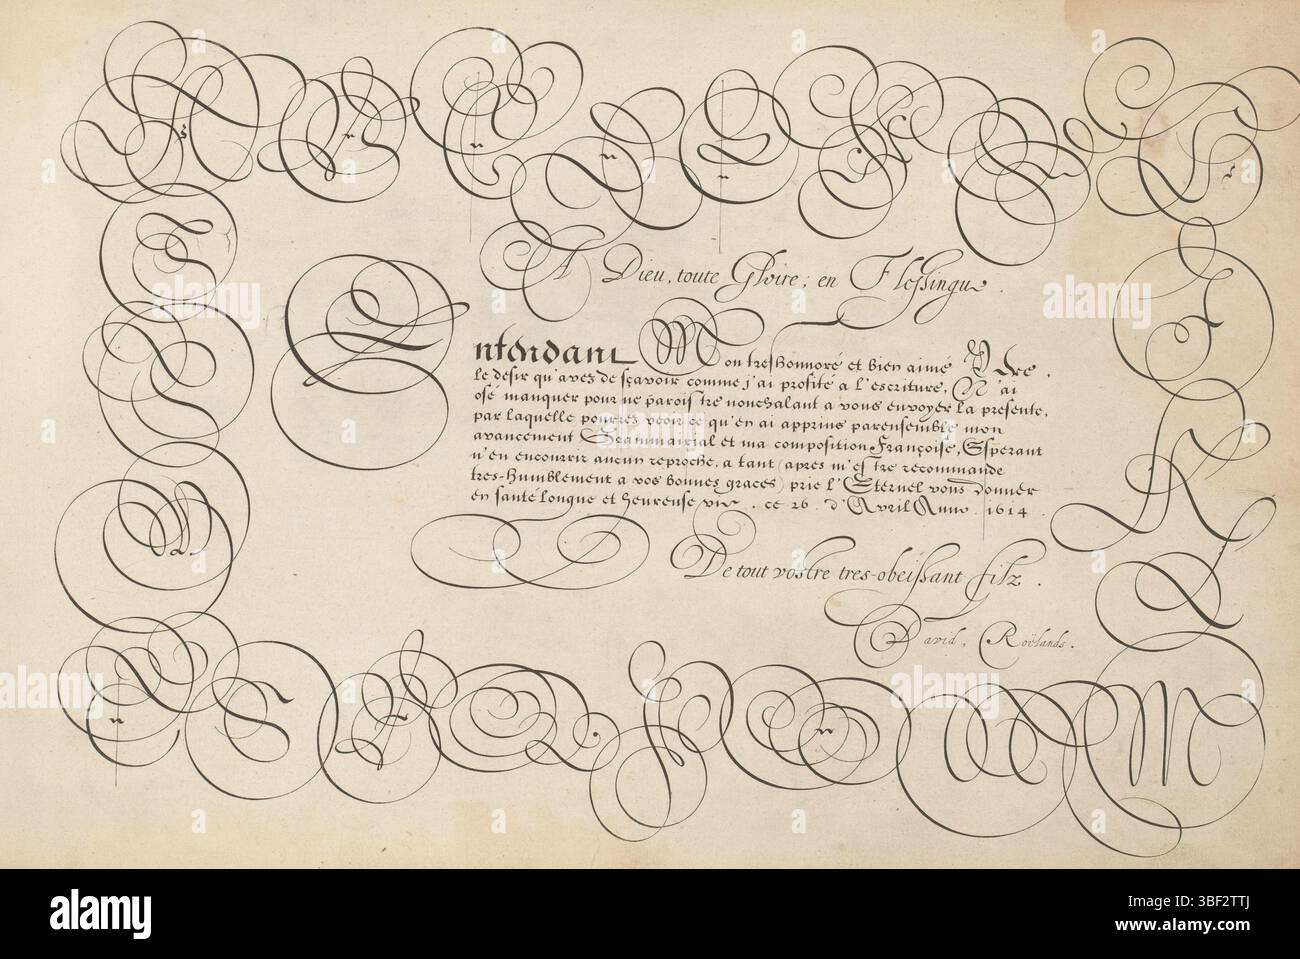 A Dieu, toute Gloire; en Flessingue.
Entendant Mon treshonnoré et bien aimé Pere.
le desir qu'avez de sçavoir comme j'ai profité a l'escriture, N'ai
osé manquer pour ne paroistre nonchalant a vous envoyer la presente,
par laquelle pourrez veoir ce qu'en ai apprins parensemble mon
avancement Grammairial et ma composition Françoise, Esperant
n'en encourrir aucun reproche, a tant (apres m'estre recommande
tres-humblement a vos bonnes graces) prie l'Eternel vous donner
en santé longue et heureuse vie. ce 26 d'Avril Anno 1614
De tout vostre tres-obeissant filz.
David, Roëlands.
alamy
alamy
Image ID: 3BF2TTJ
www.alamy.com